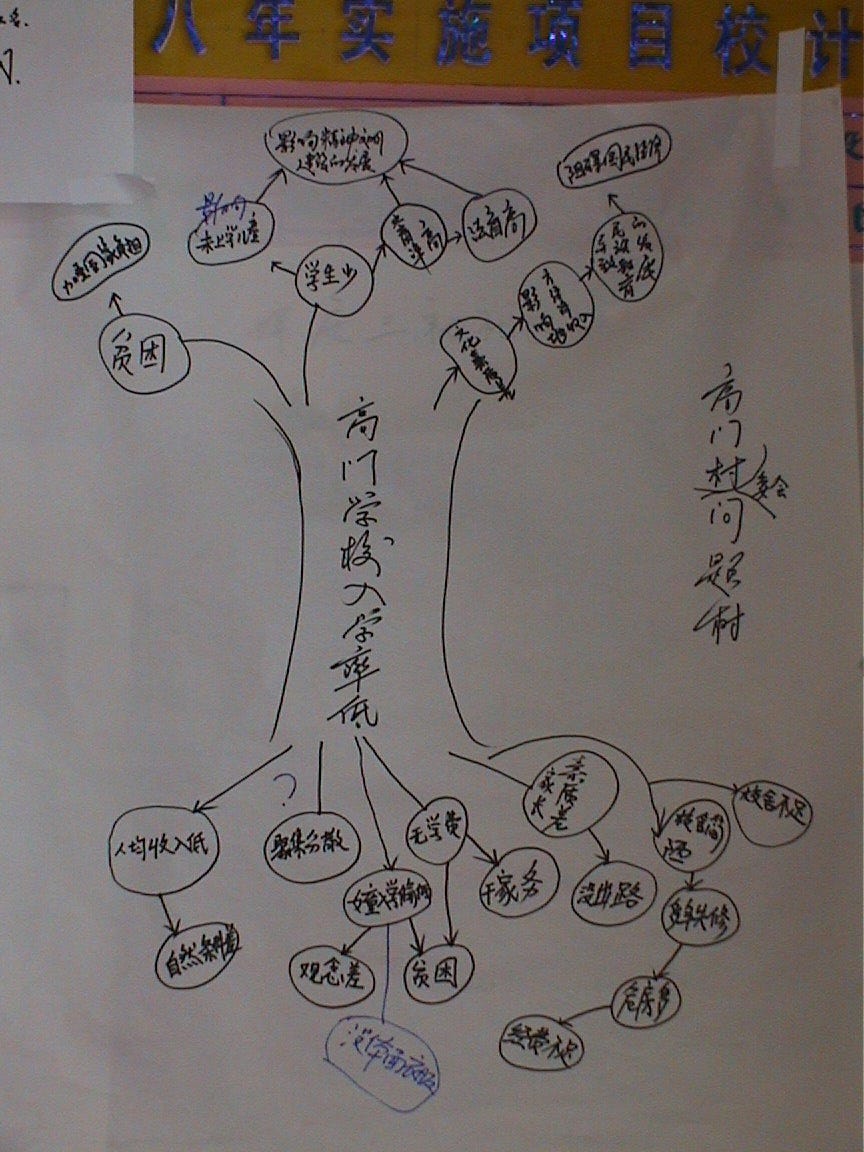 八年实施项目校计
影响精神文明
建设的发展
阻碍国民经济
影响
未上学儿童
学生少
文盲率高
法盲高
加重国家负担
贫困
文化素质
影响
高门学校入学率低
高门村问题树
委会
人均收入低
自然条件差
?
聚集分散
无学费
干家务
女童入学
观念差
贫困
没体面衣服
家长素质差
没出路
校舍简陋
校舍不足
多年失修
危房多
经费不足